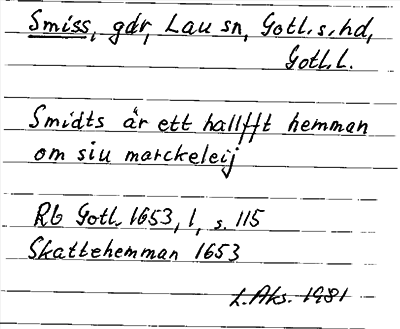 Smiss, gdr, Lau sn, Gotl. s. hd,
Gotl. l.
Smidts är ett hallfft hemman
om siu marckeleij
Rb Gotl. 1653, 1, s. 115
Skattehemman 1653
L. Aks. 1981